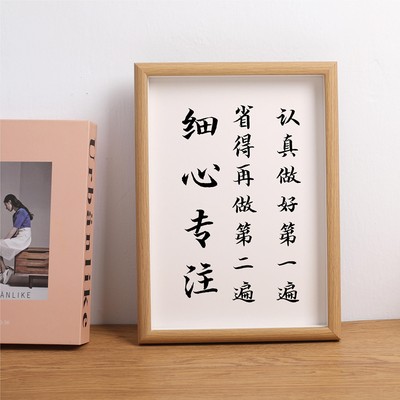 认真做好第一遍
省得再做第二遍
细心专注
Urbanlike
ANLIKE